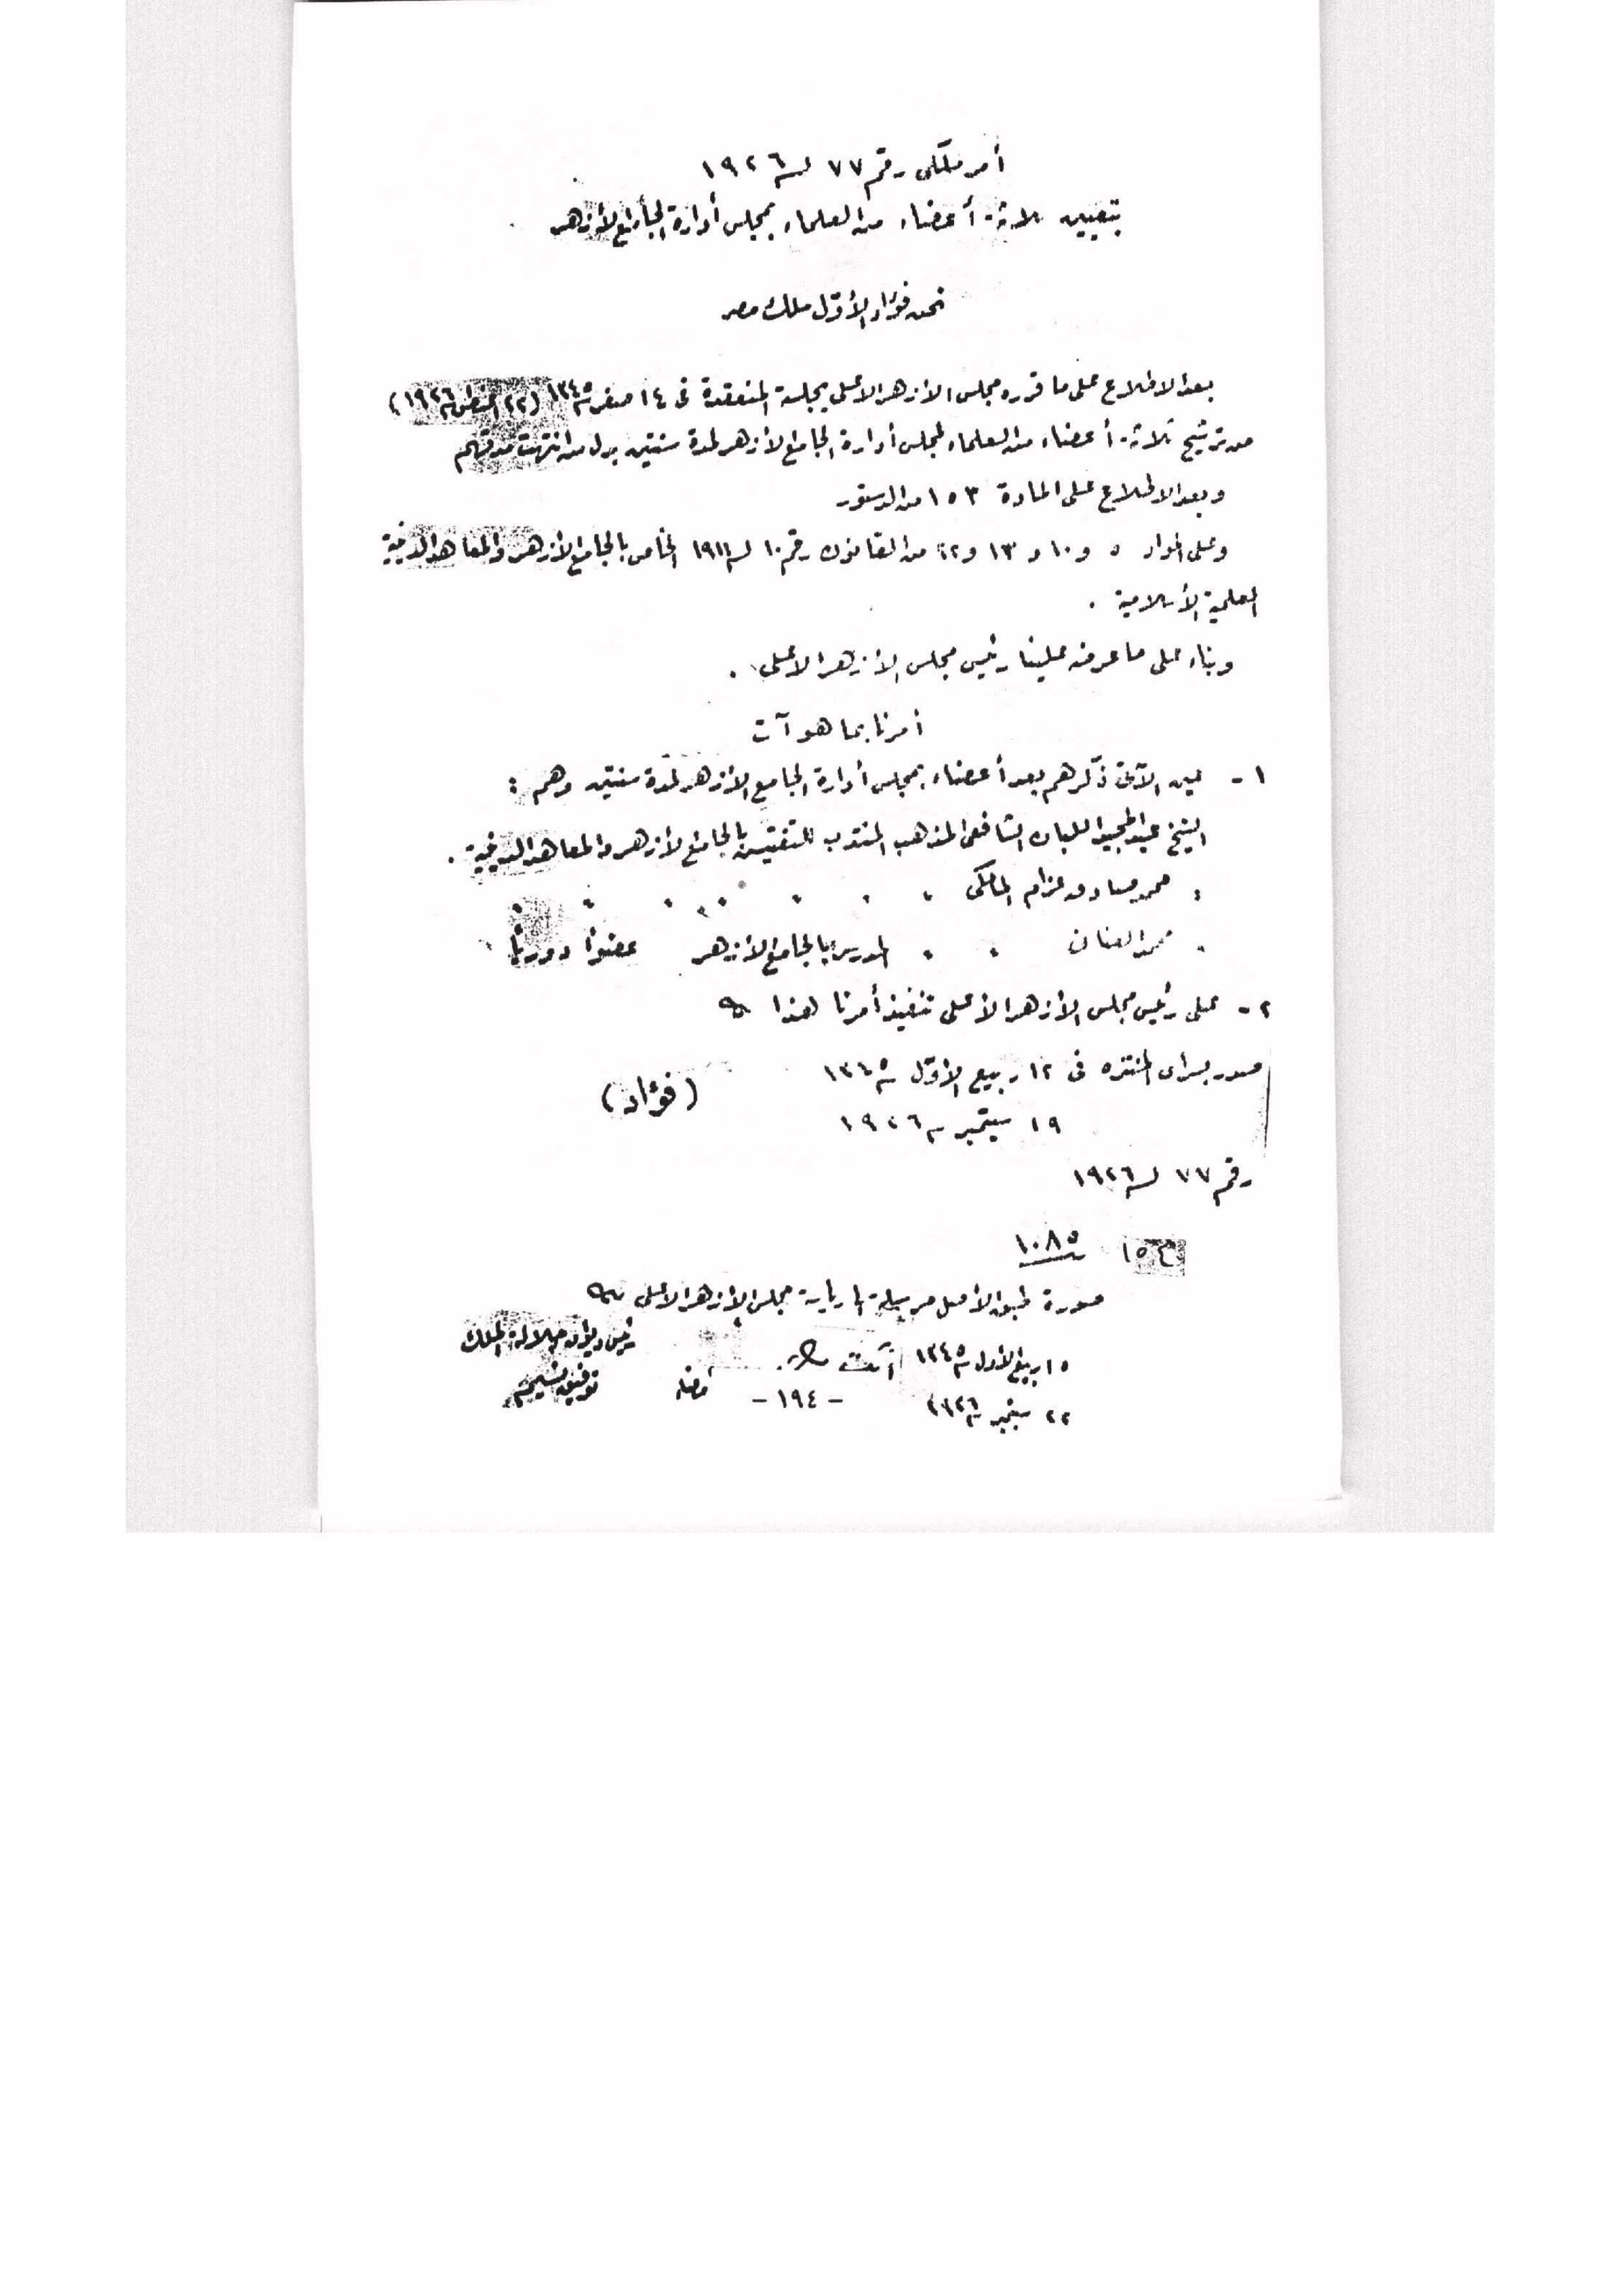 أمر ملكى رقم ٧٧ لسنة ١٩٢٦
بتعيين ثلاثة أعضاء من العلماء بمجلس أدارة الجامع الأزهر
نحن فؤاد الأوّل ملك مصر
بعد الاطلاع على ما قرره مجلس الأزهر الأعلى بجلسته المنعقدة فى ١٤ صفر سنة ١٣٤٥ (٢٢ أغسطس سنة ١٩٢٦)
من ترشيح ثلاثة أعضاء من العلماء لمجلس أدارة الجامع الأزهر لمدة سنتين بدل من انتهت مدتهم
وبعد الاطلاع على المادة ١٥٣ من الدستور
وعلى المواد ٥ و ١٠ و ١٣ و ٢٢ من القانون رقم ١٠ لسنة ١٩١١ الخاص بالجامع الأزهر والمعاهد الدينية
العلمية الأسلامية .
وبناء على ما عرضه علينا رئيس مجلس الأزهر الأعلى .
أمرنا بما هو آت
١ - عين الآتى ذكرهم بعد أعضاء بمجلس أدارة الجامع الأزهر لمدة سنتين وهم :
الشيخ عبد المجيد اللبان الشافعى المذهب المنتدب للتفتيش بالجامع الأزهر والمعاهد الدينية .
" محمد صادق عزام المالكى " " " " " " "
" محمد العنان " " المدرس بالجامع الأزهر عضوًا دوريًا
٢ - على رئيس مجلس الأزهر الأعلى تنفيذ أمرنا هذا
صدر بسراى المنتزه فى ١٢ ربيع الأوّل سنة ١٣٤٥
(فؤاد)
١٩ سبتمبر سنة ١٩٢٦
رقم ٧٧ لسنة ١٩٢٦
١٠٨٥
صورة طبق الأصل مرسلة الى رياسة مجلس الأزهر الأعلى
رئيس ديوان جلالة الملك
١٥ ربيع الأول سنة ١٣٤٥
توفيق نسيم
امضاء
- ١٩٤ -
٢٢ سبتمبر سنة ١٩٢٦